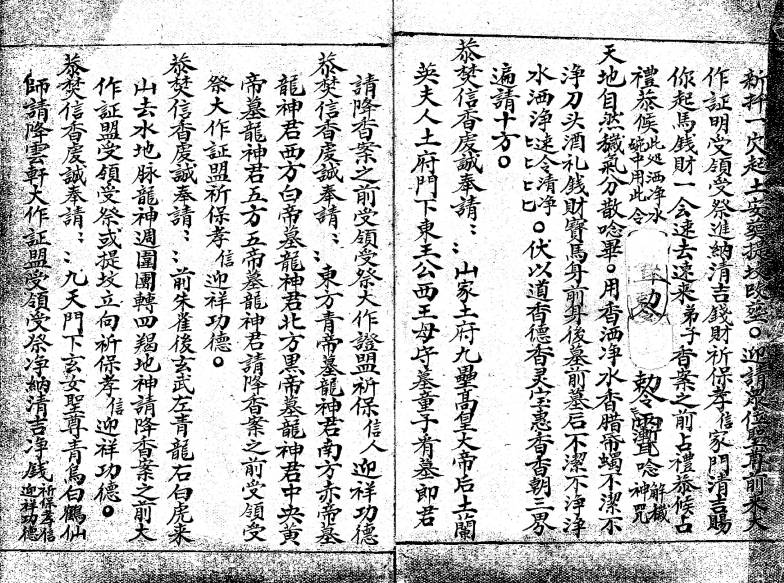 新扦一穴起土安葬提坟改葬。迎請眾位聖尊前來大
作証明受領受祭進納清吉錢財祈保孝信家門清吉賜
你起馬錢財一会速去速来弟子香案之前占禮恭候占
禮恭候此処洒净水碗中用此令 勅令 唸解穢神咒
天地自然穢氣分散唸畢。用香洒净水香腊帝蝎不潔不
净刀头酒礼錢財寳馬身前身後墓前墓后不潔不净净
水洒净速令清净匕匕匕匕。伏以道香德香灵宝惠香香朝三界
遍請十方。
恭焚信香虔誠奉請:ミ山家土府九壘髙皇大帝后土蘭
英夫人土府門下東王公西王母守墓童子看墓郎君
請降香案之前受領受祭大作證盟祈保信人迎祥功德
恭焚信香虔誠奉請:ミ東方青帝墓龍神君南方赤帝墓
龍神君西方白帝墓龍神君北方黑帝墓龍神君中央黄
帝墓龍神君五方五帝墓龍神君請降香案之前受領受
祭大作証盟祈保孝信迎祥功德。
恭焚信香虔誠奉請:ミ前朱雀後玄武左青龍右白虎来
山去水地脉龍神週圍團轉四羯地神請降香案之前大
作証盟受領受祭或提坟立向祈保孝信迎祥功德。
恭焚信香虔誠奉請:ミ九天門下玄女聖尊青烏白鶴仙
師請降雲軒大作証盟受領受祭净納清吉净錢祈保孝信迎祥功德